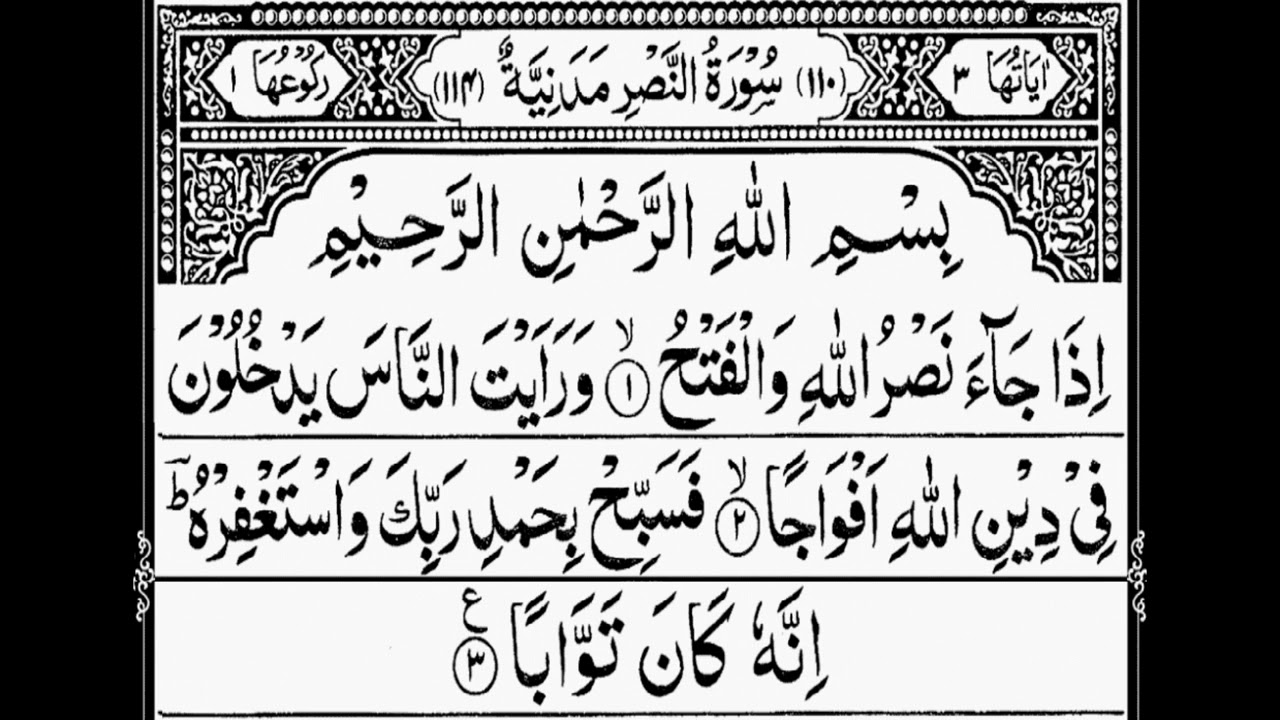 اٰيَاتُهَا ٣ (١١٠) سُوْرَةُ النَّصْرِ مَدَنِيَّةٌ (١١٤) رُكُوْعُهَا ١
بِسْمِ اللّٰهِ الرَّحْمٰنِ الرَّحِيْمِ
اِذَا جَآءَ نَصْرُ اللّٰهِ وَالْفَتْحُ ۙ﴿١﴾ وَرَاَيْتَ النَّاسَ يَدْخُلُوْنَ
فِيْ دِيْنِ اللّٰهِ اَفْوَاجًا ۙ﴿٢﴾ فَسَبِّحْ بِحَمْدِ رَبِّكَ وَاسْتَغْفِرْهُ ؕ
اِنَّهٗ كَانَ تَوَّابًا ﴿٣﴾ ع